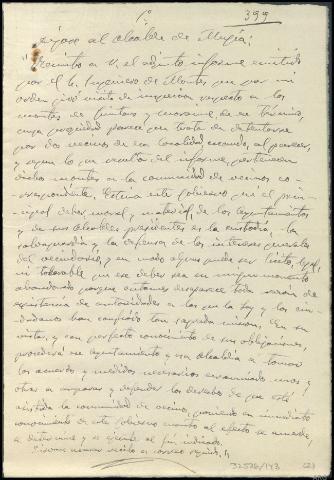 1º
399
Dígase al Alcalde de Mugía:
"Remito a V. el adjunto informe emitido
por el Sr. Ingeniero de Montes que por mi
orden giró visita de inspección respecto a los
montes de y de su término,
cuya propiedad parece que trata de detentarse
por dos vecinos de esa localidad, cuando, al parecer,
y según lo que resulta del informe, pertenecen
dichos montes a la comunidad de vecinos co-
rrespondiente. Estima este Gobierno que el prin-
cipal deber moral y material, de los Ayuntamientos
y de sus Alcaldes presidentes es la custodia, la
salvaguardia y la defensa de los intereses generales
del vecindario, y en modo alguno puede ser lícito, legal,
ni tolerable que ese deber sea en ningún momento
abandonado porque entonces desaparece toda razón de
existencia de autoridades a las que la ley y los ciu-
dadanos han confiado tan sagrada misión. En su
vista, y con perfecto conocimiento de sus obligaciones,
procederá ese Ayuntamiento y esa Alcaldía a tomar
los acuerdos y medidas necesarios encaminados unos y
otros a amparar y defender los derechos de que está
asistida la comunidad de vecinos, poniendo en inmediato
conocimiento de este Gobierno cuanto al efecto se acuerde,
se determine y se ejecute al fin indicado.
Sírvase acusar recibo en correo seguido,"
32526/143 (2)